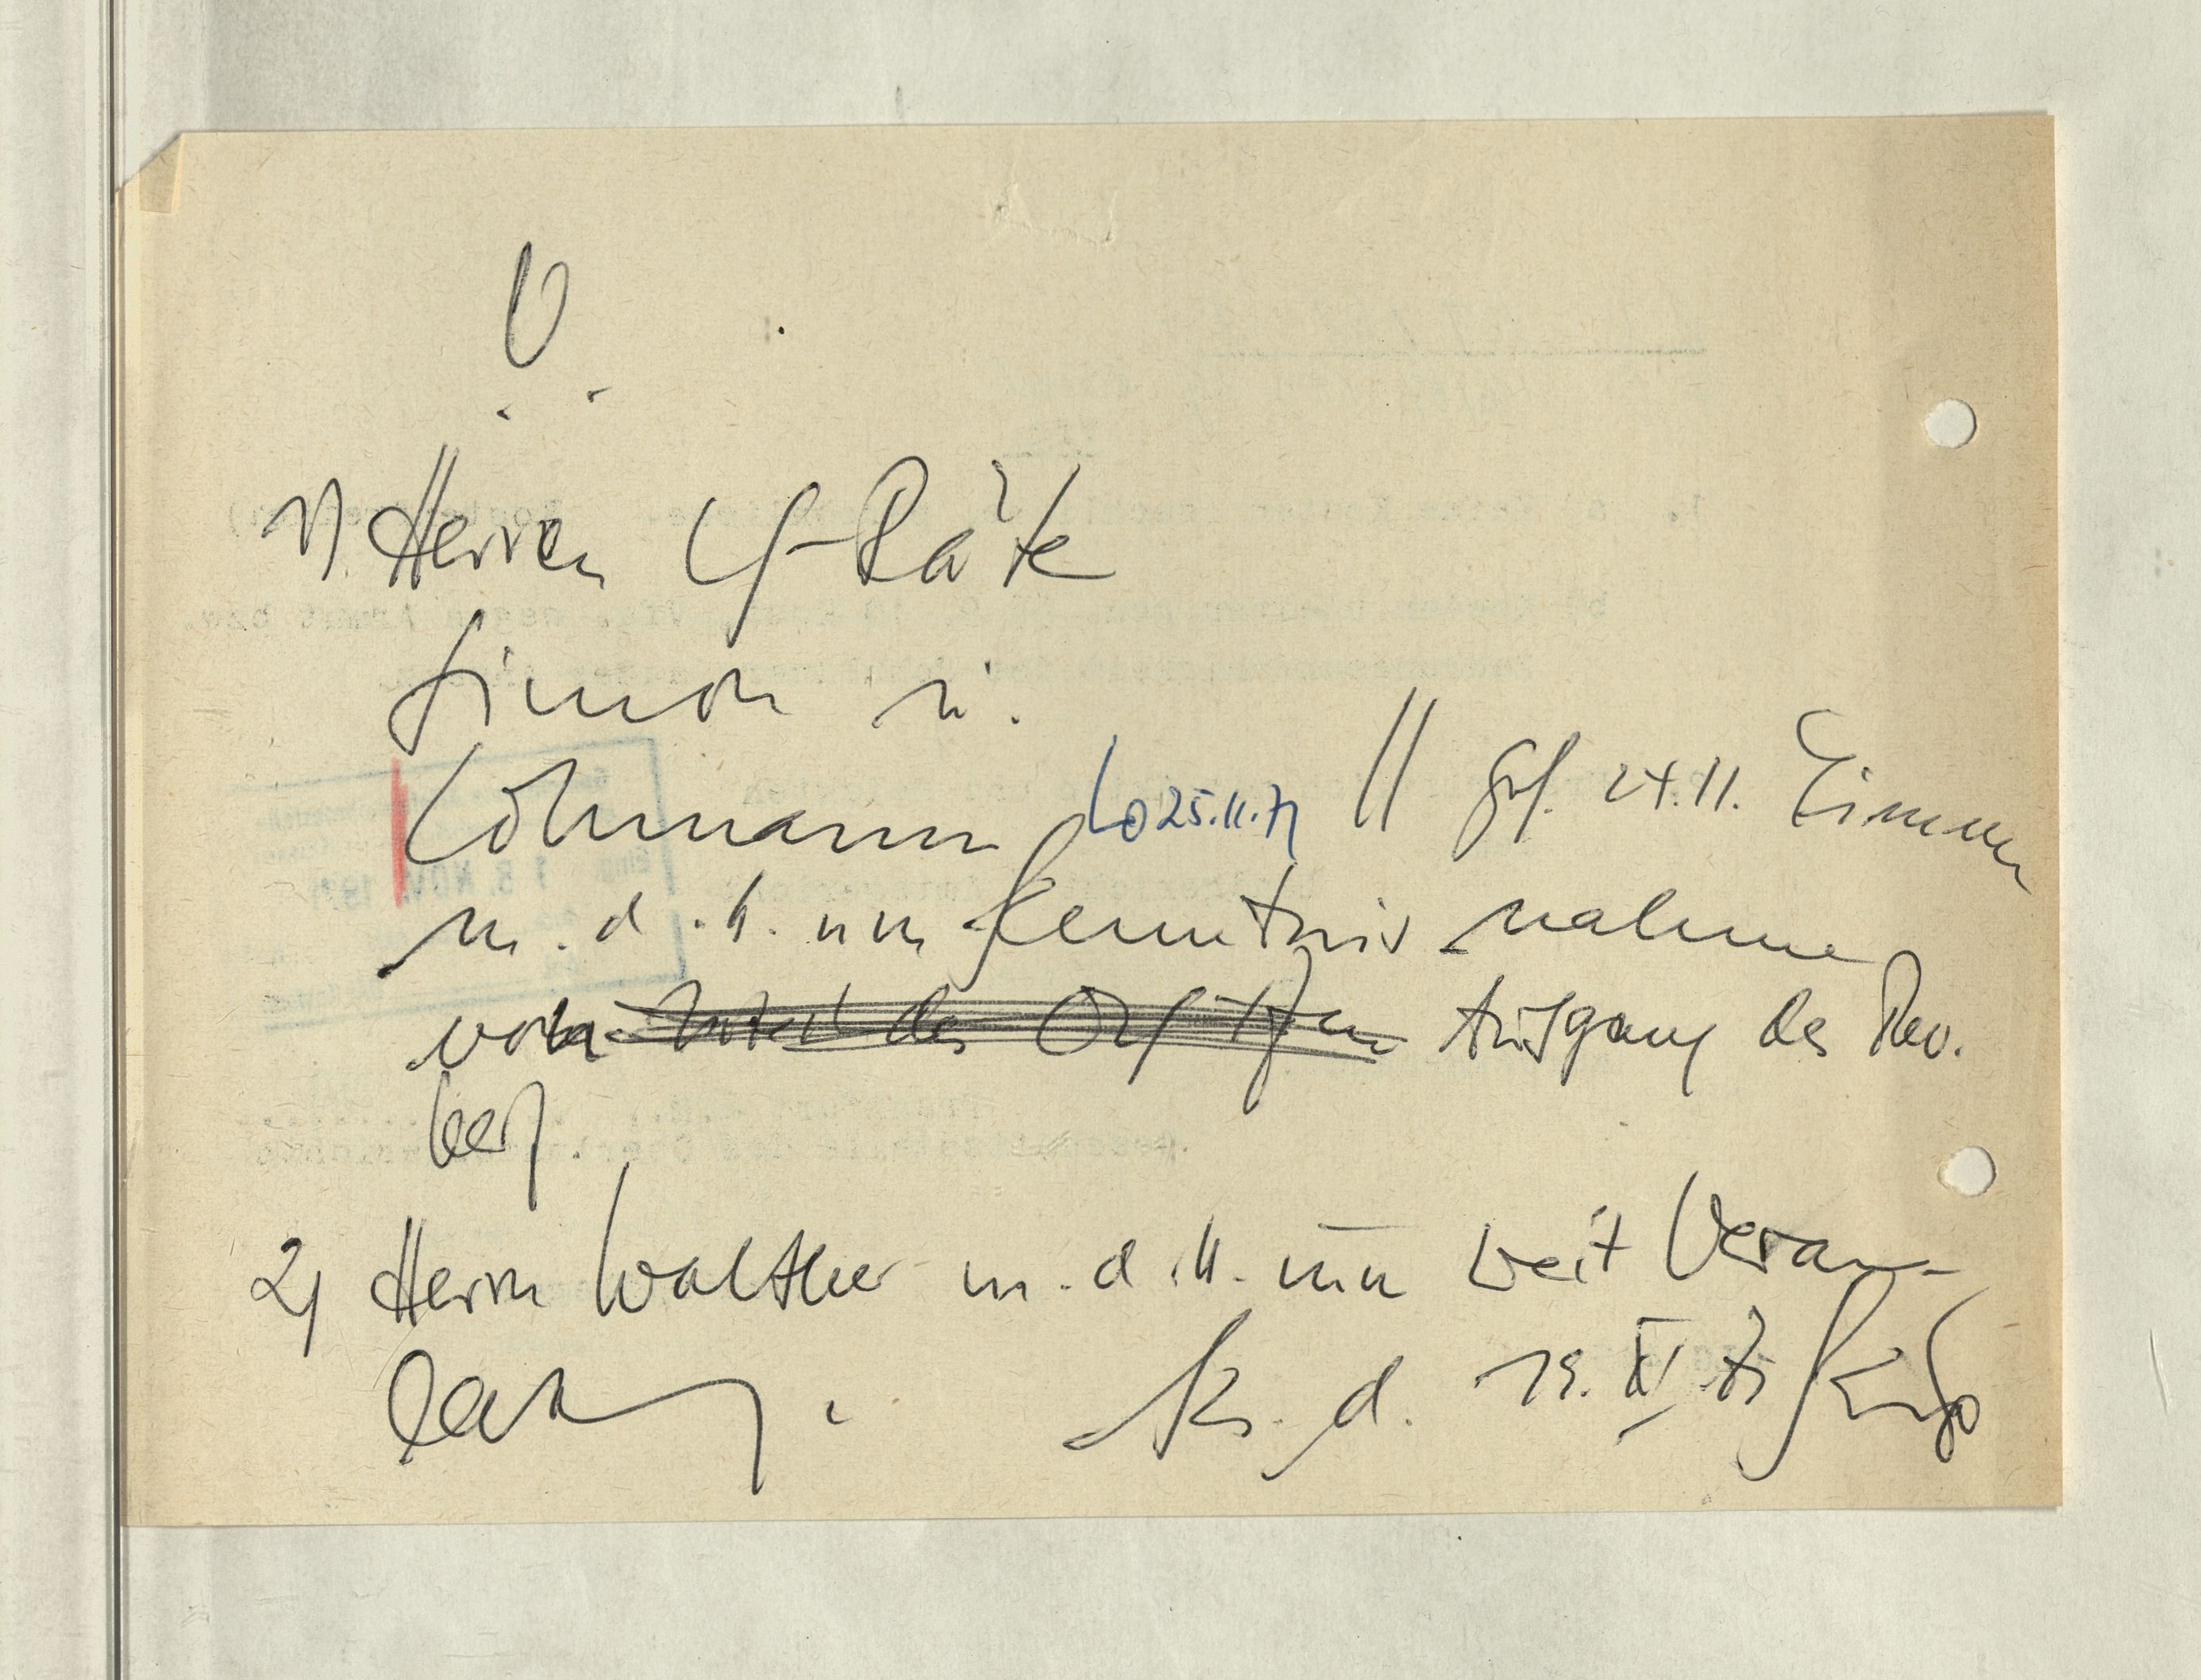 V.
1) Herren LG-Räte
Simon u.
Lohmann Lo 25.11.71 // ges. 24.11. Simon
m. d. B. um Kenntnisnahme
vom Ausgang des Rev.
Verf.
2) Herrn Walther m. d. B. um weit Veran-
lassg.
Ks. d. 19. XI 71